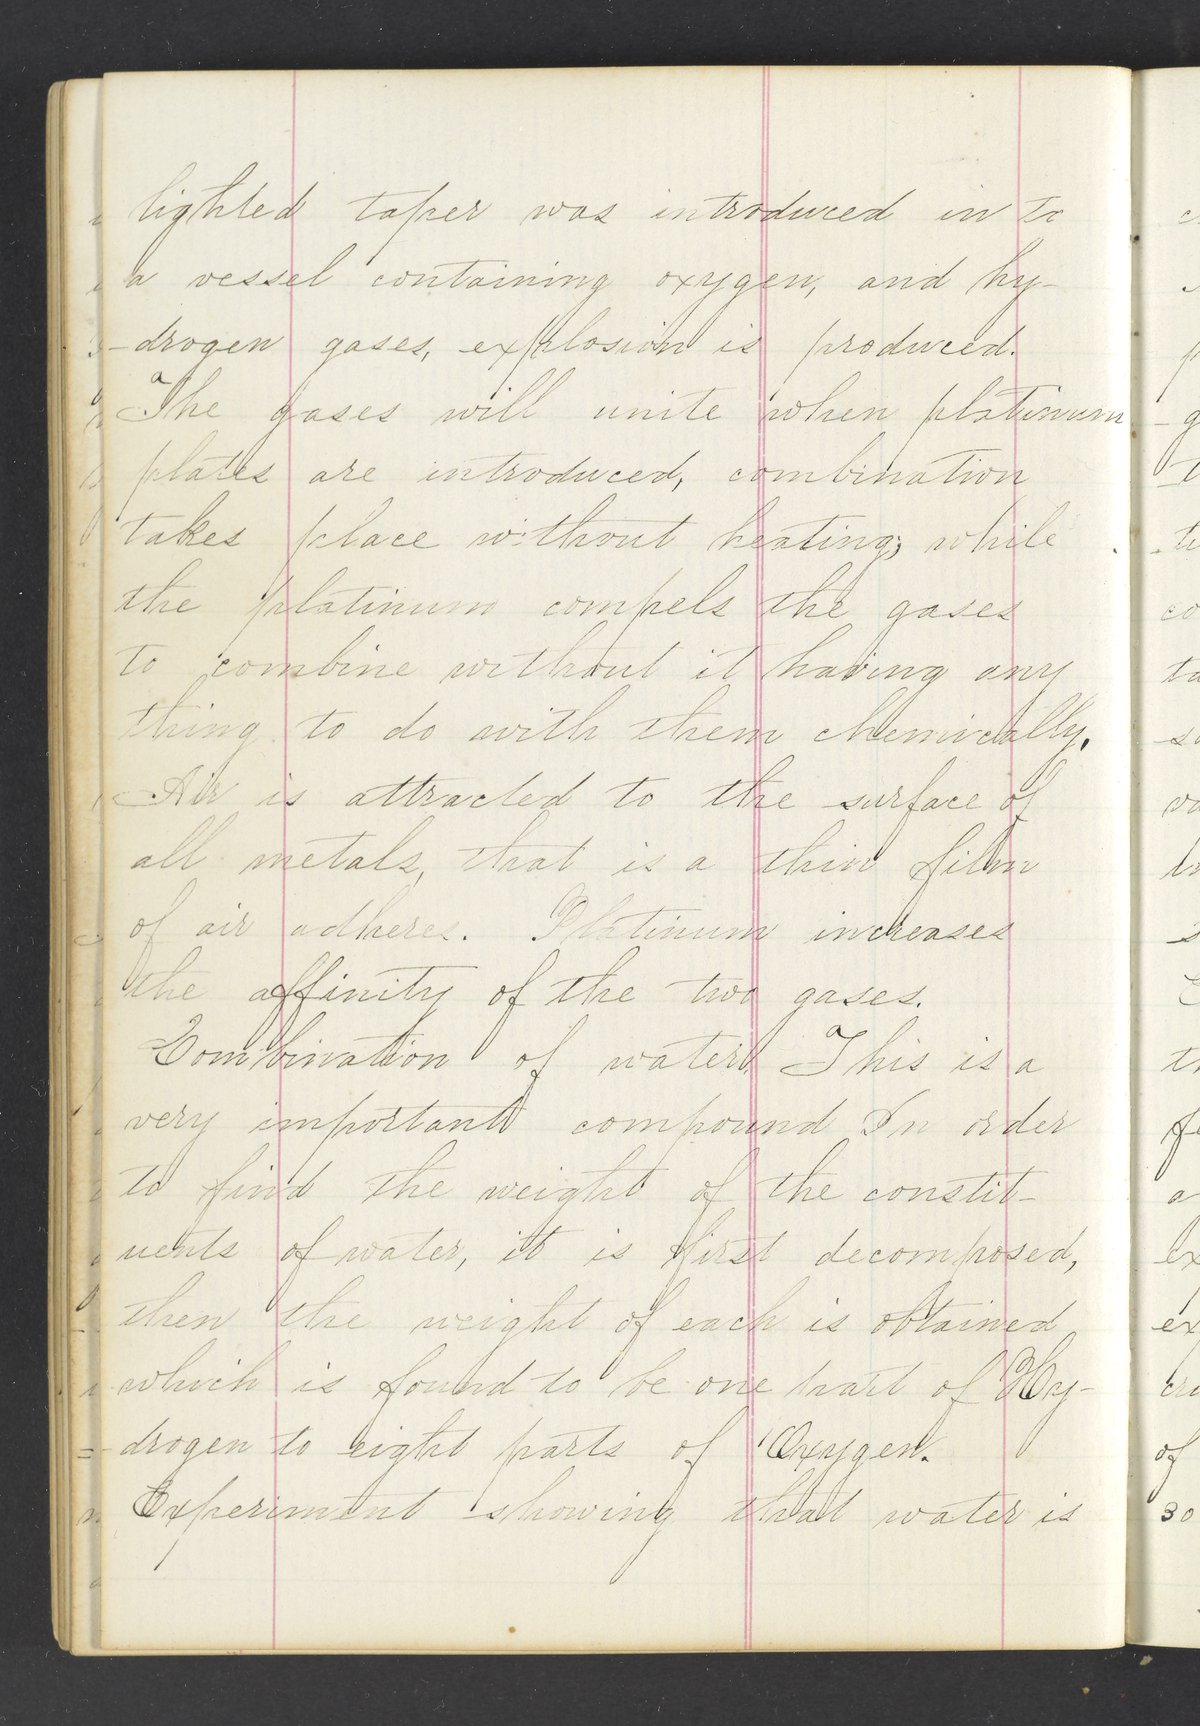 lighted taper was introduced in to
a vessel containing oxygen, and hy-
-drogen gases, explosion is produced.
The gases will unite when platinum
plates are introduced, combination
takes place without heating; while
the platinum compels the gases
to combine without it having any
thing to do with them chemically.
Air is attracted to the surface of
all metals, that is a thin film
of air adheres. Platinum increases
the affinity of the two gases.
Combination of water. This is a
very important compound In order
to find the weight of the constit-
uents of water, it is first decomposed,
then the weight of each is obtained
which is found to be one part of Hy-
drogen to eight parts of Oxygen.
Experiment showing that water is
30